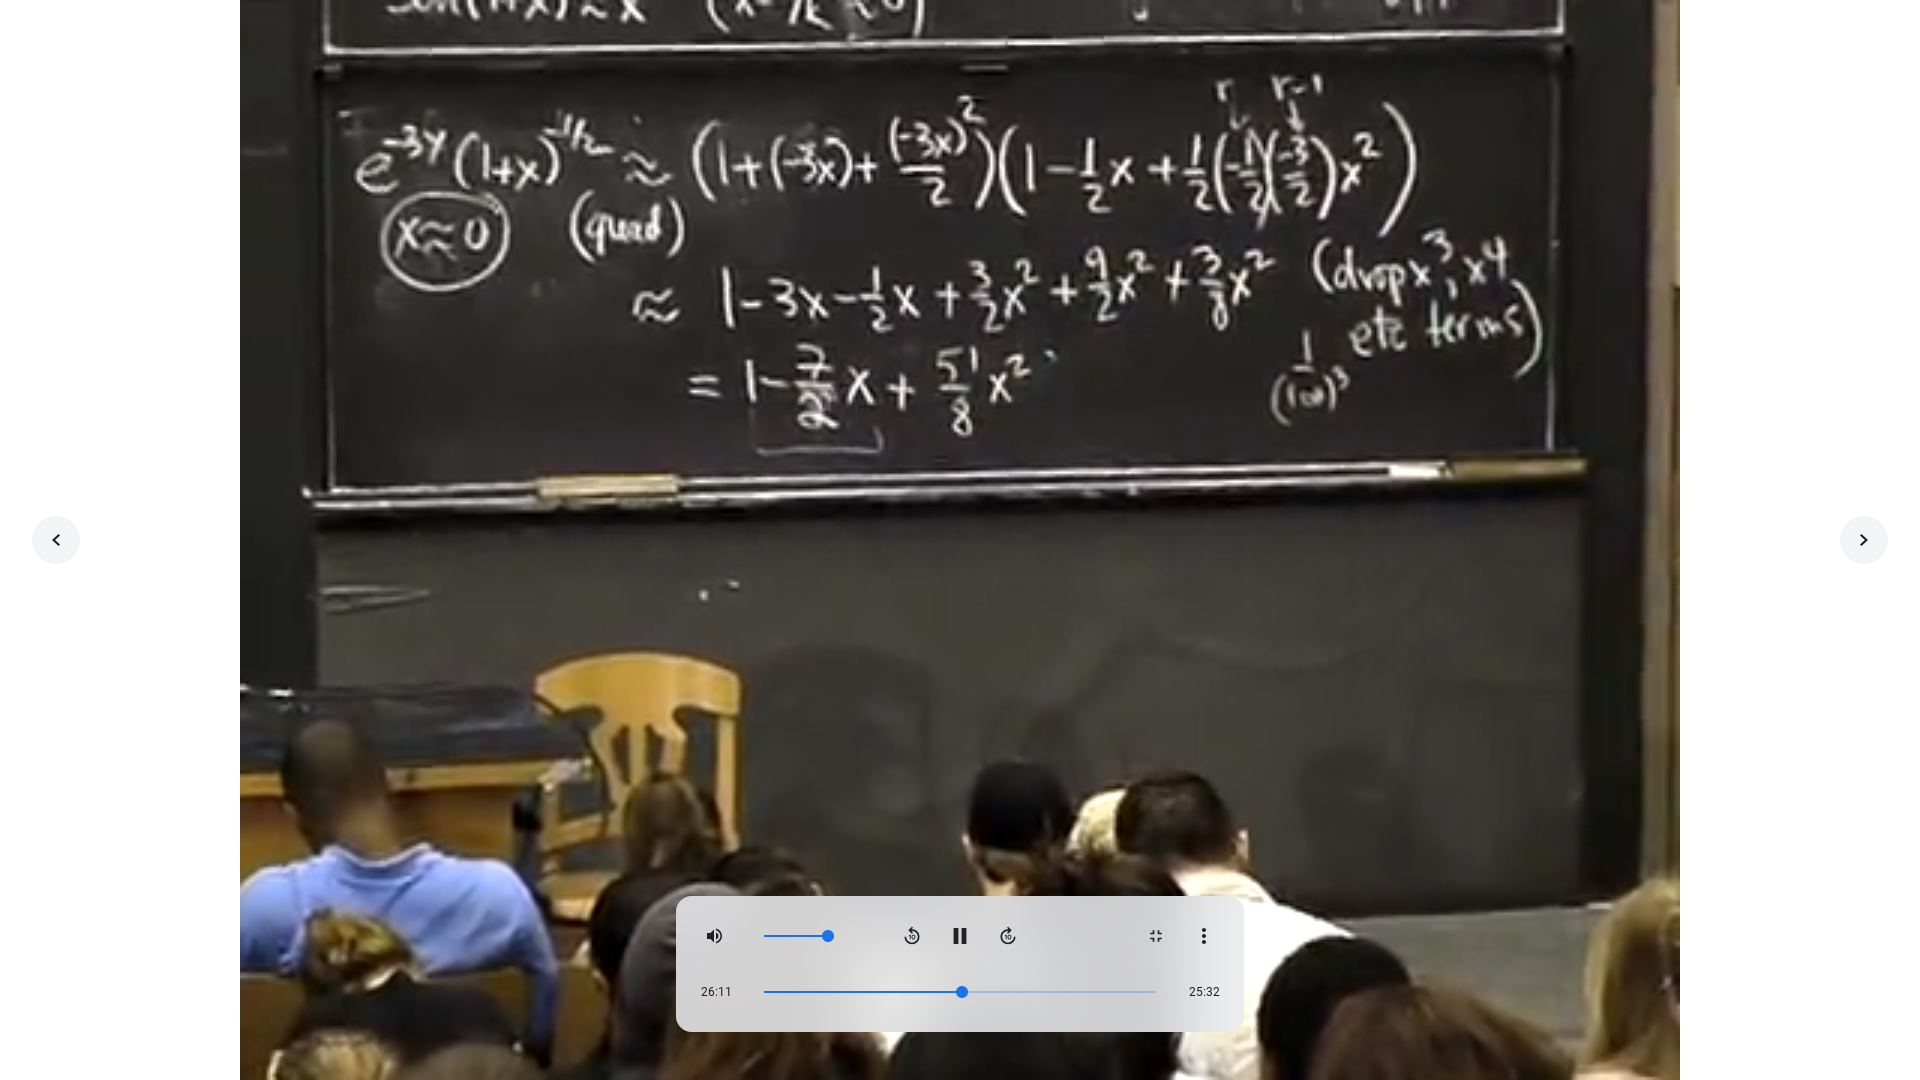 e^{-3x}(1+x)^{-1/2} ≈ (1+(-3x)+\frac{(-3x)^2}{2})(1-\frac{1}{2}x+\frac{1}{2}(-\frac{1}{2})(\frac{-3}{2})x^2)
r r-1
x≈0 (quad)
≈ 1-3x-\frac{1}{2}x+\frac{3}{2}x^2+\frac{9}{2}x^2+\frac{3}{8}x^2 (drop x^3, x^4
etc terms)
= 1-\frac{7}{2}x+\frac{51}{8}x^2 \frac{1}{(100)^3}
26:11 25:32